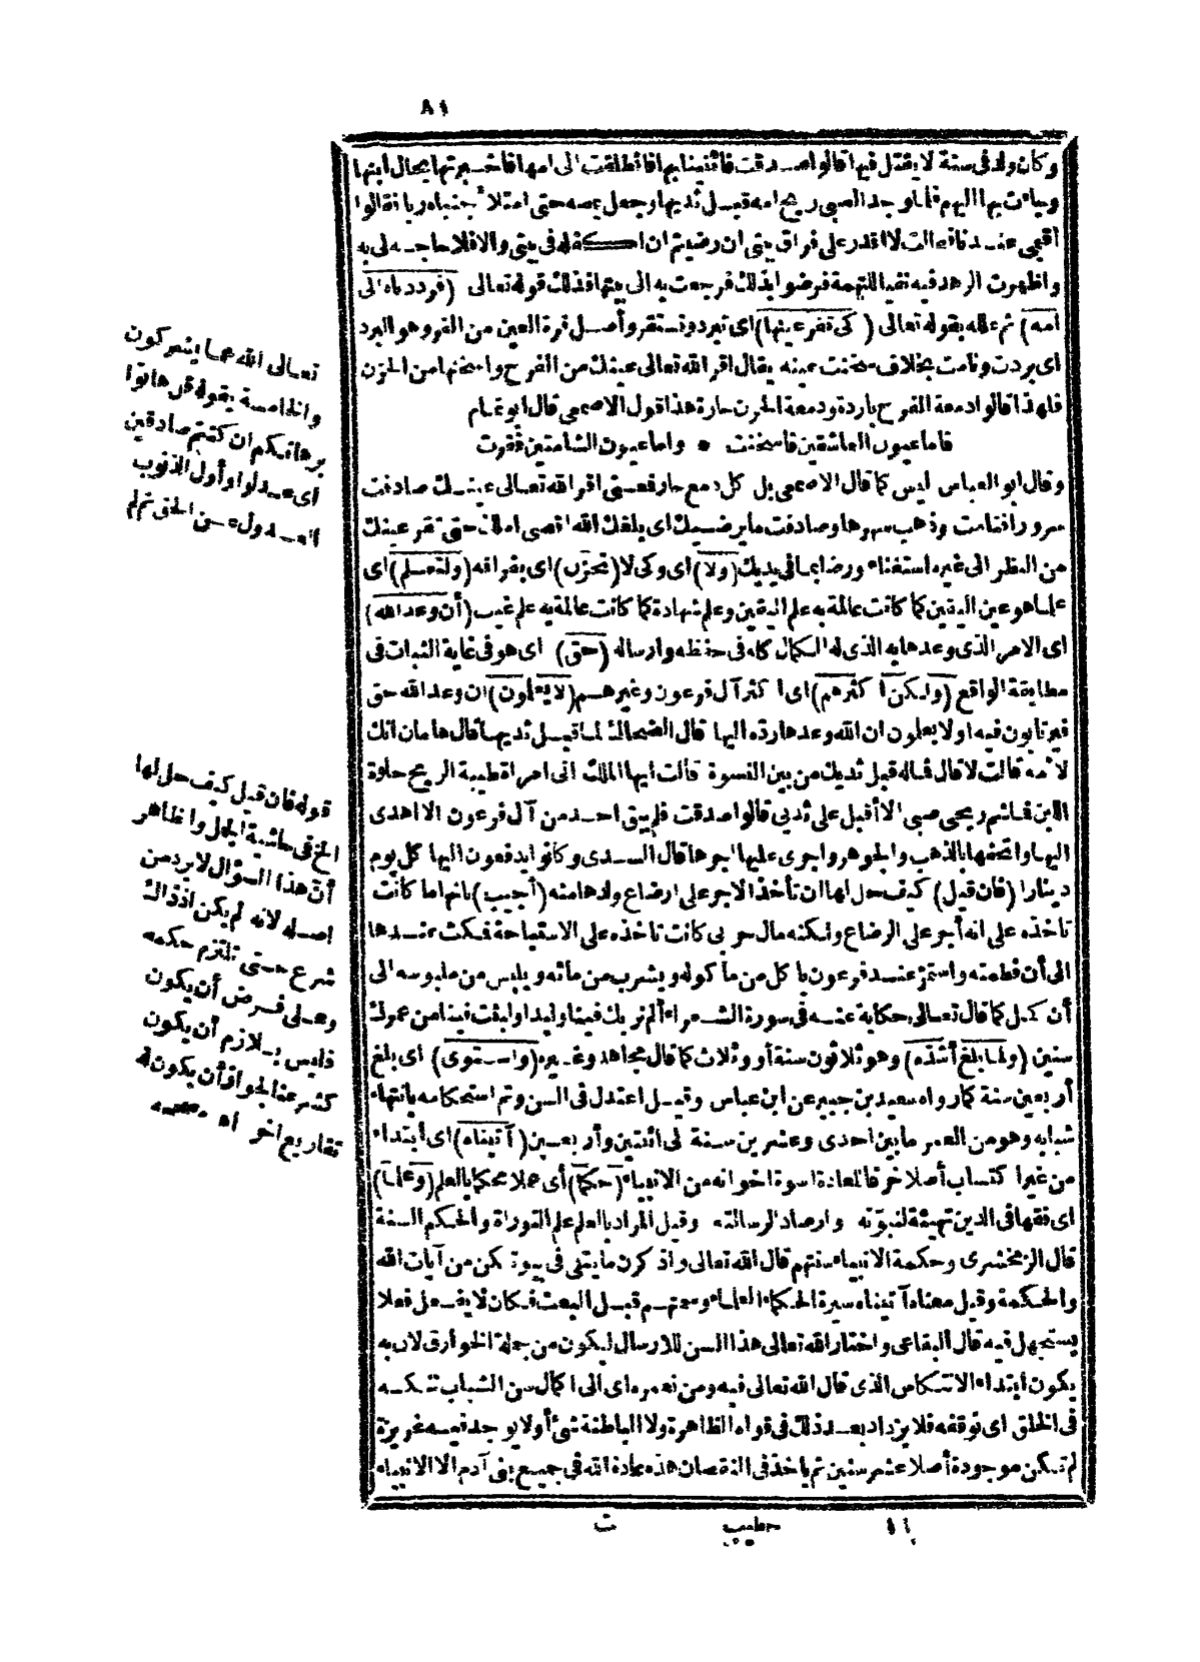 ٨١
وكان ولد في سنة لا يقتل فيها قالوا صدقت فائتينا بها فانطلقت الى امها فاخبرتها بحال ابنها
وجاءت بها اليهم فلما وجد الصبى ريح امه قبل ثديها وجعل يمصه حتى امتلأ جنباه ريا فقالوا
أقيمى عندنا فقالت لا أقدر على فراق بيتى ان رضيتم ان اكفله فى بيتى والا فلا حاجة لى به
واظهرت الزهد فيه نفيا للتهمة فرضوا بذلك فرجعت به الى بيتها فذلك قوله تعالى (فرددناه الى
أمه) ثم علله بقوله تعالى (كى تقر عينها) اى تبرد وتستقر وأصل قرة العين من القر وهو البرد
اى بردت ونامت بخلاف سخنت عينه يقال اقر الله تعالى عينك من الفرح واسخنها من الحزن
فلهذا قالوا دمعة الفرح باردة ودمعة الحزن حارة هذا قول الاصمعى قال ابو تمام
فاما عيون العاشقين فاسخنت * واما عيون الشامتين فقرت
وقال ابو العباس ليس كما قال الاصمعى بل كل دمع حار فمعنى اقر الله تعالى عينك صادفت
سرورا فنامت وذهب سهرها وصادفت ما يرضيك اى بلغك الله اقصى املك حتى تقر عينك
من النظر الى غيره استغناء ورضا بما فى يديك (ولا) اى وكى لا (تحزن) اى بفراقه (ولتعلم) اى
علما هو عين اليقين كما كانت عالمة به علم اليقين وعلم شهادة كما كانت عالمة به علم غيب (أن وعد الله)
اى الامر الذى وعدها به الذى له الكمال كله فى حفظه وارساله (حق) اى هو فى غاية الثبات فى
مطابقة الواقع (ولكن أكثرهم) اى أكثر آل فرعون وغيرهم (لا يعلمون) ان وعد الله حق
فيرتابون فيه او لا يعلمون ان الله وعدها رده اليها قال الضحاك لما قبل ثديها قال هامان انك
لأمه قالت لا قال فما له قبل ثديك من بين النسوة قالت ايها الملك انى امرأة طيبة الريح حلوة
اللبن فما شم ريحى صبى الا أقبل على ثديى قالوا صدقت فلم يبق احد من آل فرعون الا اهدى
اليها واتحفها بالذهب والجوهر واجرى عليها اجرها قال السدى وكانوا يدفعون اليها كل يوم
دينارا (فان قيل) كيف حل لها ان تأخذ الاجر على ارضاع ولدها منه (أجيب) بانها ما كانت
تاخذه على انه أجر على الرضاع ولكنه مال حربى كانت تاخذه على الاستباحة فمكث عندها
الى أن فطمته واستمر عند فرعون ياكل من ماكوله ويشرب من مائه ويلبس من ملبوسه الى
أن كمل كما قال تعالى حكاية عنه فى سورة الشعراء ألم نربك فينا وليدا ولبثت فينا من عمرك
سنين (ولما بلغ أشده) وهو ثلاثون سنة أو وثلاث كما قال مجاهد وغيره (واستوى) اى بلغ
أربعين سنة كما رواه سعيد بن جبير عن ابن عباس وقيل اعتدل فى السن وتم استحكامه بانتهاء
شبابه وهو من العمر ما بين احدى وعشرين سنة الى اثنتين وأربعين (آتيناه) اى ابتداء
من غير اكتساب أصلا خرقا للعادة اسوة اخوانه من الانبياء (حكما) أى عملا محكما بالعلم (وعلما)
اى فقها فى الدين تهيئة لنبوته وارصاد الرسالته وقيل المراد بالعلم علم التوراة والحكم السنة
قال الزمخشرى وحكمة الانبياء سنتهم قال الله تعالى واذكرن ما يتلى فى بيوتكن من آيات الله
والحكمة وقيل معناه آتيناه سيرة الحكماء العلماء وسمتهم قبل البعث فكان لا يفعل فعلا
يستجهل فيه قال البقاعى واختار الله تعالى هذا السن للارسال ليكون من جملة الخوارق لان به
يكون ابتداء الانتكاس الذى قال الله تعالى فيه ومن نعمره اى الى اكمال سن الشباب ننكسه
فى الخلق اى نوقفه فلا يزداد بعد ذلك فى قواه الظاهرة ولا الباطنة شئ أو لا يوجد فيه غريزة
لم تكن موجودة أصلا عشر سنين ثم ياخذ فى النقصان هذه عادة الله فى جميع بنى آدم الا الانبياء
تعالى الله عما يشركون
والخامسة بقوله قل هاتوا
برهانكم ان كنتم صادقين
اى عدلوا وأول الذنوب
العدول عن الحق ثم لم
قوله فان قيل كيف حل لها
الخ فى حاشية الجمل والظاهر
أن هذا السؤال لا يرد من
اصله لانه لم يكن اذ ذاك
شرع حتى تلتزم حكمه
وعلى فرض أن يكون
فليس بلازم أن يكون
كشرعنا لجواز أن يكون له
تفاريع اخر اه مصححه
١١ خطيب ث